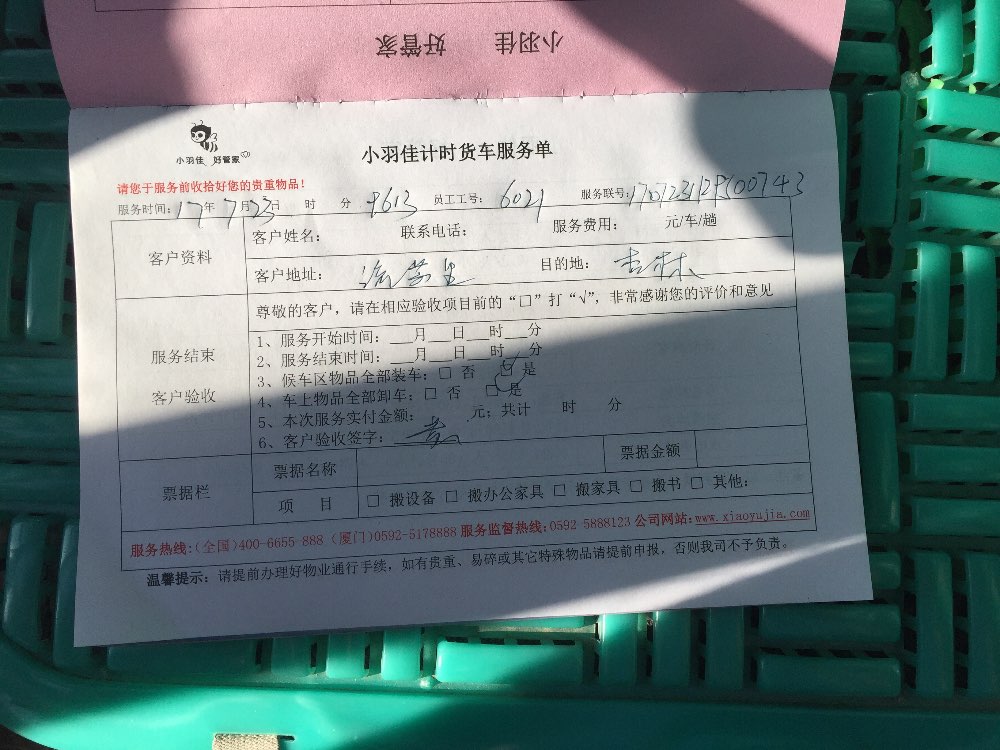 小羽佳 好管家
小羽佳 好管家
小羽佳计时货车服务单
请您于服务前收拾好您的贵重物品!
服务时间: 17年 7月23日 时 分 9613 员工工号: 6021 服务联号:
客户资料
客户姓名: 联系电话: 服务费用: 元/车/趟
客户地址: 目的地: 杏林
服务结束
客户验收
尊敬的客户，请在相应验收项目前的“□”打“√”，非常感谢您的评价和意见
1、服务开始时间: ___月___日___时___分
2、服务结束时间: ___月___日___时___分
3、候车区物品全部装车: □ 否 □ 是
4、车上物品全部卸车: □ 否 □ 是
5、本次服务实付金额: 元; 共计 时 分
6、客户验收签字:
票据栏
票据名称 票据金额
项 目 □ 搬设备 □ 搬办公家具 □ 搬家具 □ 搬书 □ 其他:
服务热线:(全国)400-6655-888 (厦门)0592-5178888 服务监督热线:0592 5888123 公司网站:www.xiaoyujia.com
温馨提示: 请提前办理好物业通行手续，如有贵重、易碎或其它特殊物品请提前申报，否则我司不予负责。